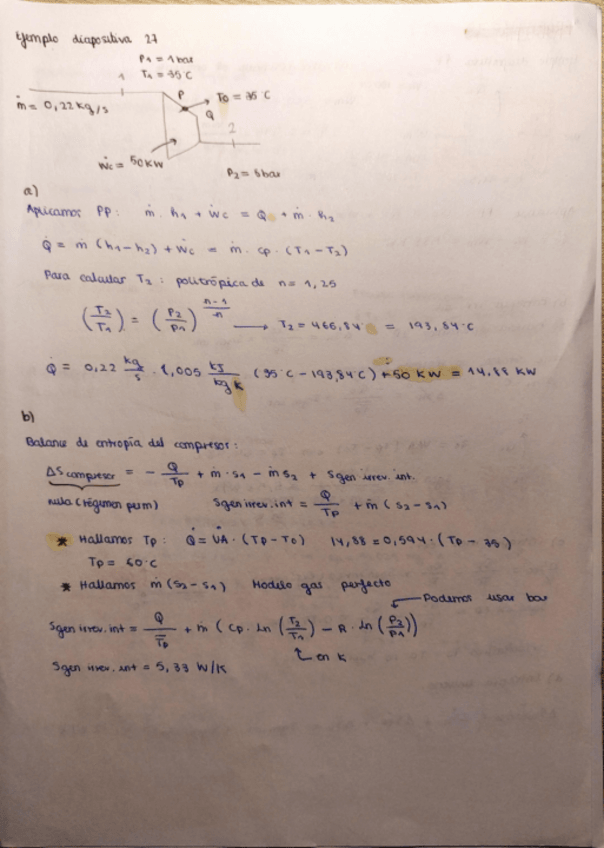 Ejemplo diapositiva 27
P1 = 1 bar
1 T1 = 35°C
P T0 = 35°C
ṁ = 0,22 kg/s
Q
2
Ẇc = 50 KW
P2 = 6 bar
a)
Aplicamos PP: ṁ · h1 + Ẇc = Q̇ + ṁ · h2
Q̇ = ṁ (h1 - h2) + Ẇc = ṁ · cp · (T1 - T2)
Para calcular T2 : politrópica de n = 1,25
(T2/T1) = (P2/P1)^((n-1)/n) → T2 = 466,84 = 193,84°C
Q̇ = 0,22 kg/s · 1,005 kJ/kg K (35°C - 193,84°C) + 50 KW = 14,88 KW
b)
Balance de entropía del compresor:
ΔS compresor = - Q̇/Tp + ṁ · s1 - ṁ s2 + Sgen irrev. int.
nula (régimen perm) Sgen irrev. int = Q̇/Tp + ṁ (s2 - s1)
* Hallamos Tp: Q̇ = UA · (Tp - T0) 14,88 = 0,594 · (Tp - 35)
Tp = 60°C
* Hallamos ṁ (s2 - s1) Modelo gas perfecto
Podemos usar bar
Sgen irrev. int = Q̇/Tp + ṁ (cp · ln (T2/T1) - R · ln (P2/P1))
en K
Sgen irrev. int = 5,33 W/K